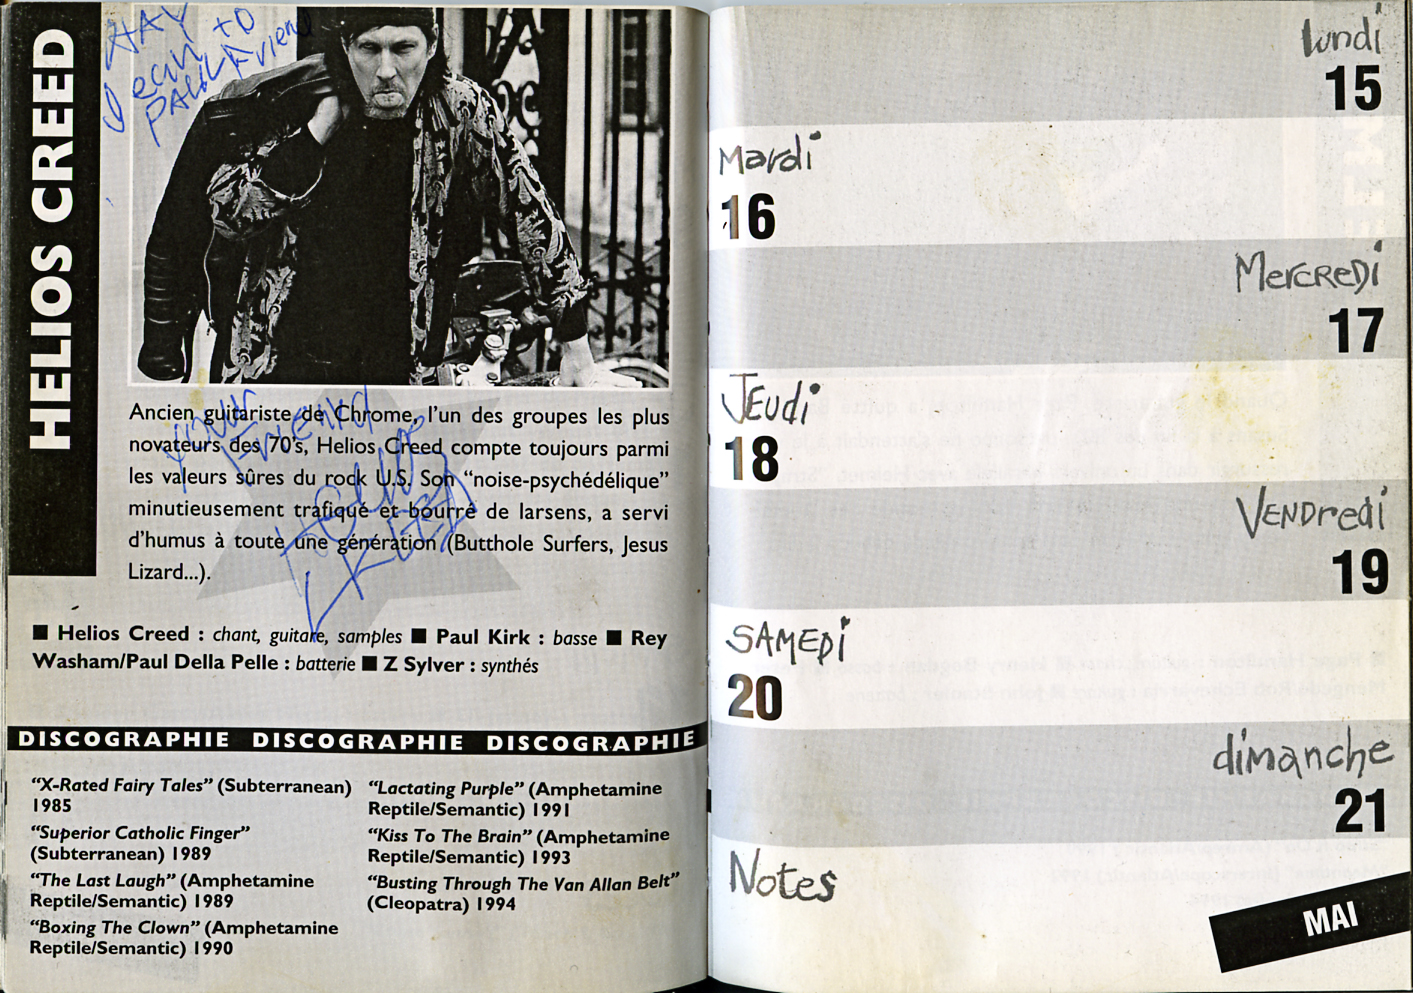 HELIOS CREED
HAY
Jean to
PAUL Friend
Your
Friend
Helios
CREED
Ancien guitariste de Chrome, l'un des groupes les plus
novateurs des 70's, Helios Creed compte toujours parmi
les valeurs sûres du rock U.S. Son “noise-psychédélique”
minutieusement trafiqué et bourré de larsens, a servi
d'humus à toute une génération (Butthole Surfers, Jesus
Lizard...).
■ Helios Creed : chant, guitare, samples ■ Paul Kirk : basse ■ Rey
Washam/Paul Della Pelle : batterie ■ Z Sylver : synthés
DISCOGRAPHIE DISCOGRAPHIE DISCOGRAPHIE
“X-Rated Fairy Tales” (Subterranean)
1985
“Superior Catholic Finger”
(Subterranean) 1989
“The Last Laugh” (Amphetamine
Reptile/Semantic) 1989
“Boxing The Clown” (Amphetamine
Reptile/Semantic) 1990
“Lactating Purple” (Amphetamine
Reptile/Semantic) 1991
“Kiss To The Brain” (Amphetamine
Reptile/Semantic) 1993
“Busting Through The Van Allan Belt”
(Cleopatra) 1994
lundi
15
Mardi
16
MercReDi
17
JEudi
18
VENDredi
19
SAMEDi
20
dimanche
21
Notes
MAI